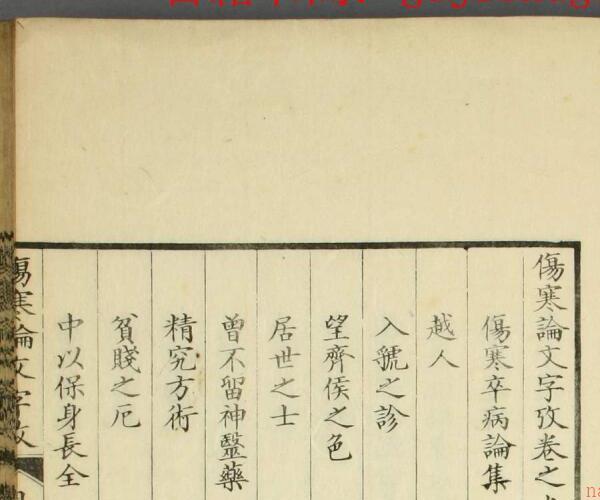 傷寒論文字攷卷之
傷寒卒病論集
越人
入虢之診
望齊侯之色
居世之士
曾不留神醫藥
精究方術
貧賤之厄
中以保身長全
傷寒論文字攷